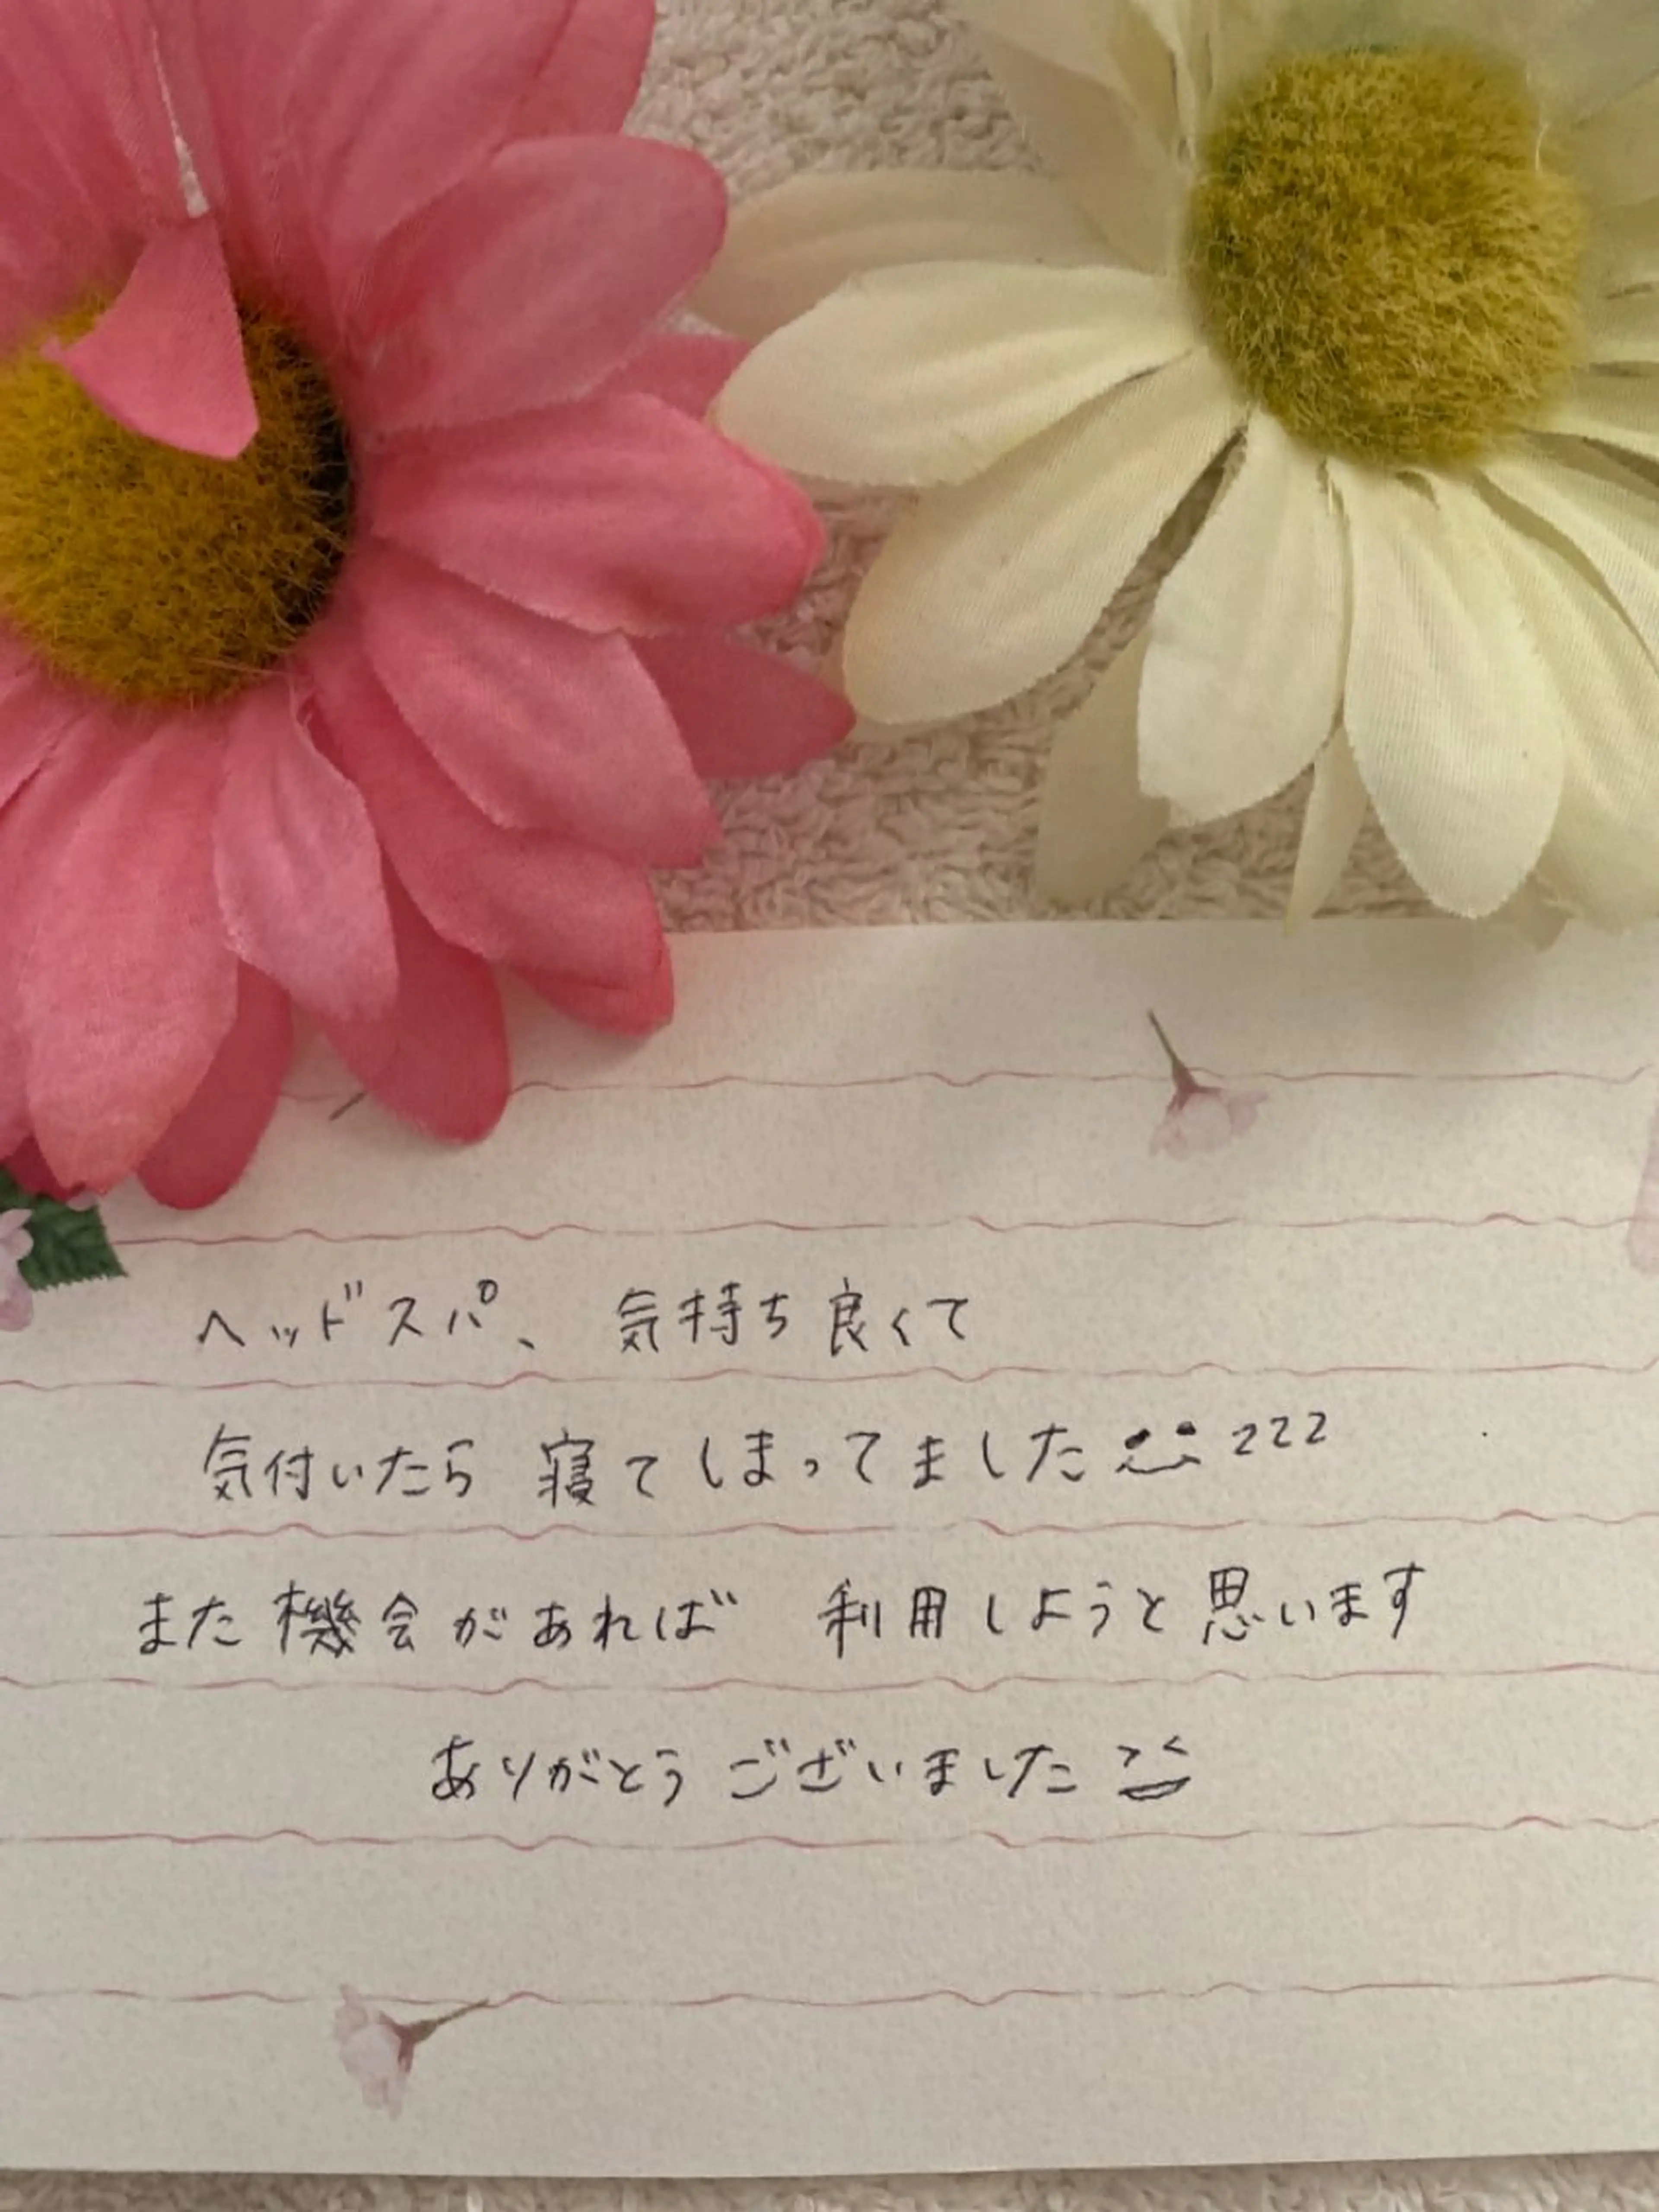 ヘッドスパ、気持ち良くて
気付いたら寝てしまってました zzz
また機会があれば 利用しようと思います
ありがとうございました